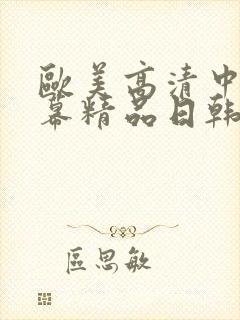 歐美高清中
幕精品日韓
區思敏